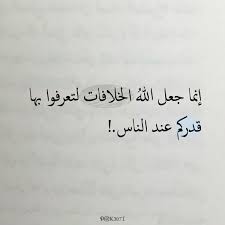 إنما جعل اللهُ الخلافات لتعرفوا بها
قدركم عند الناس.!